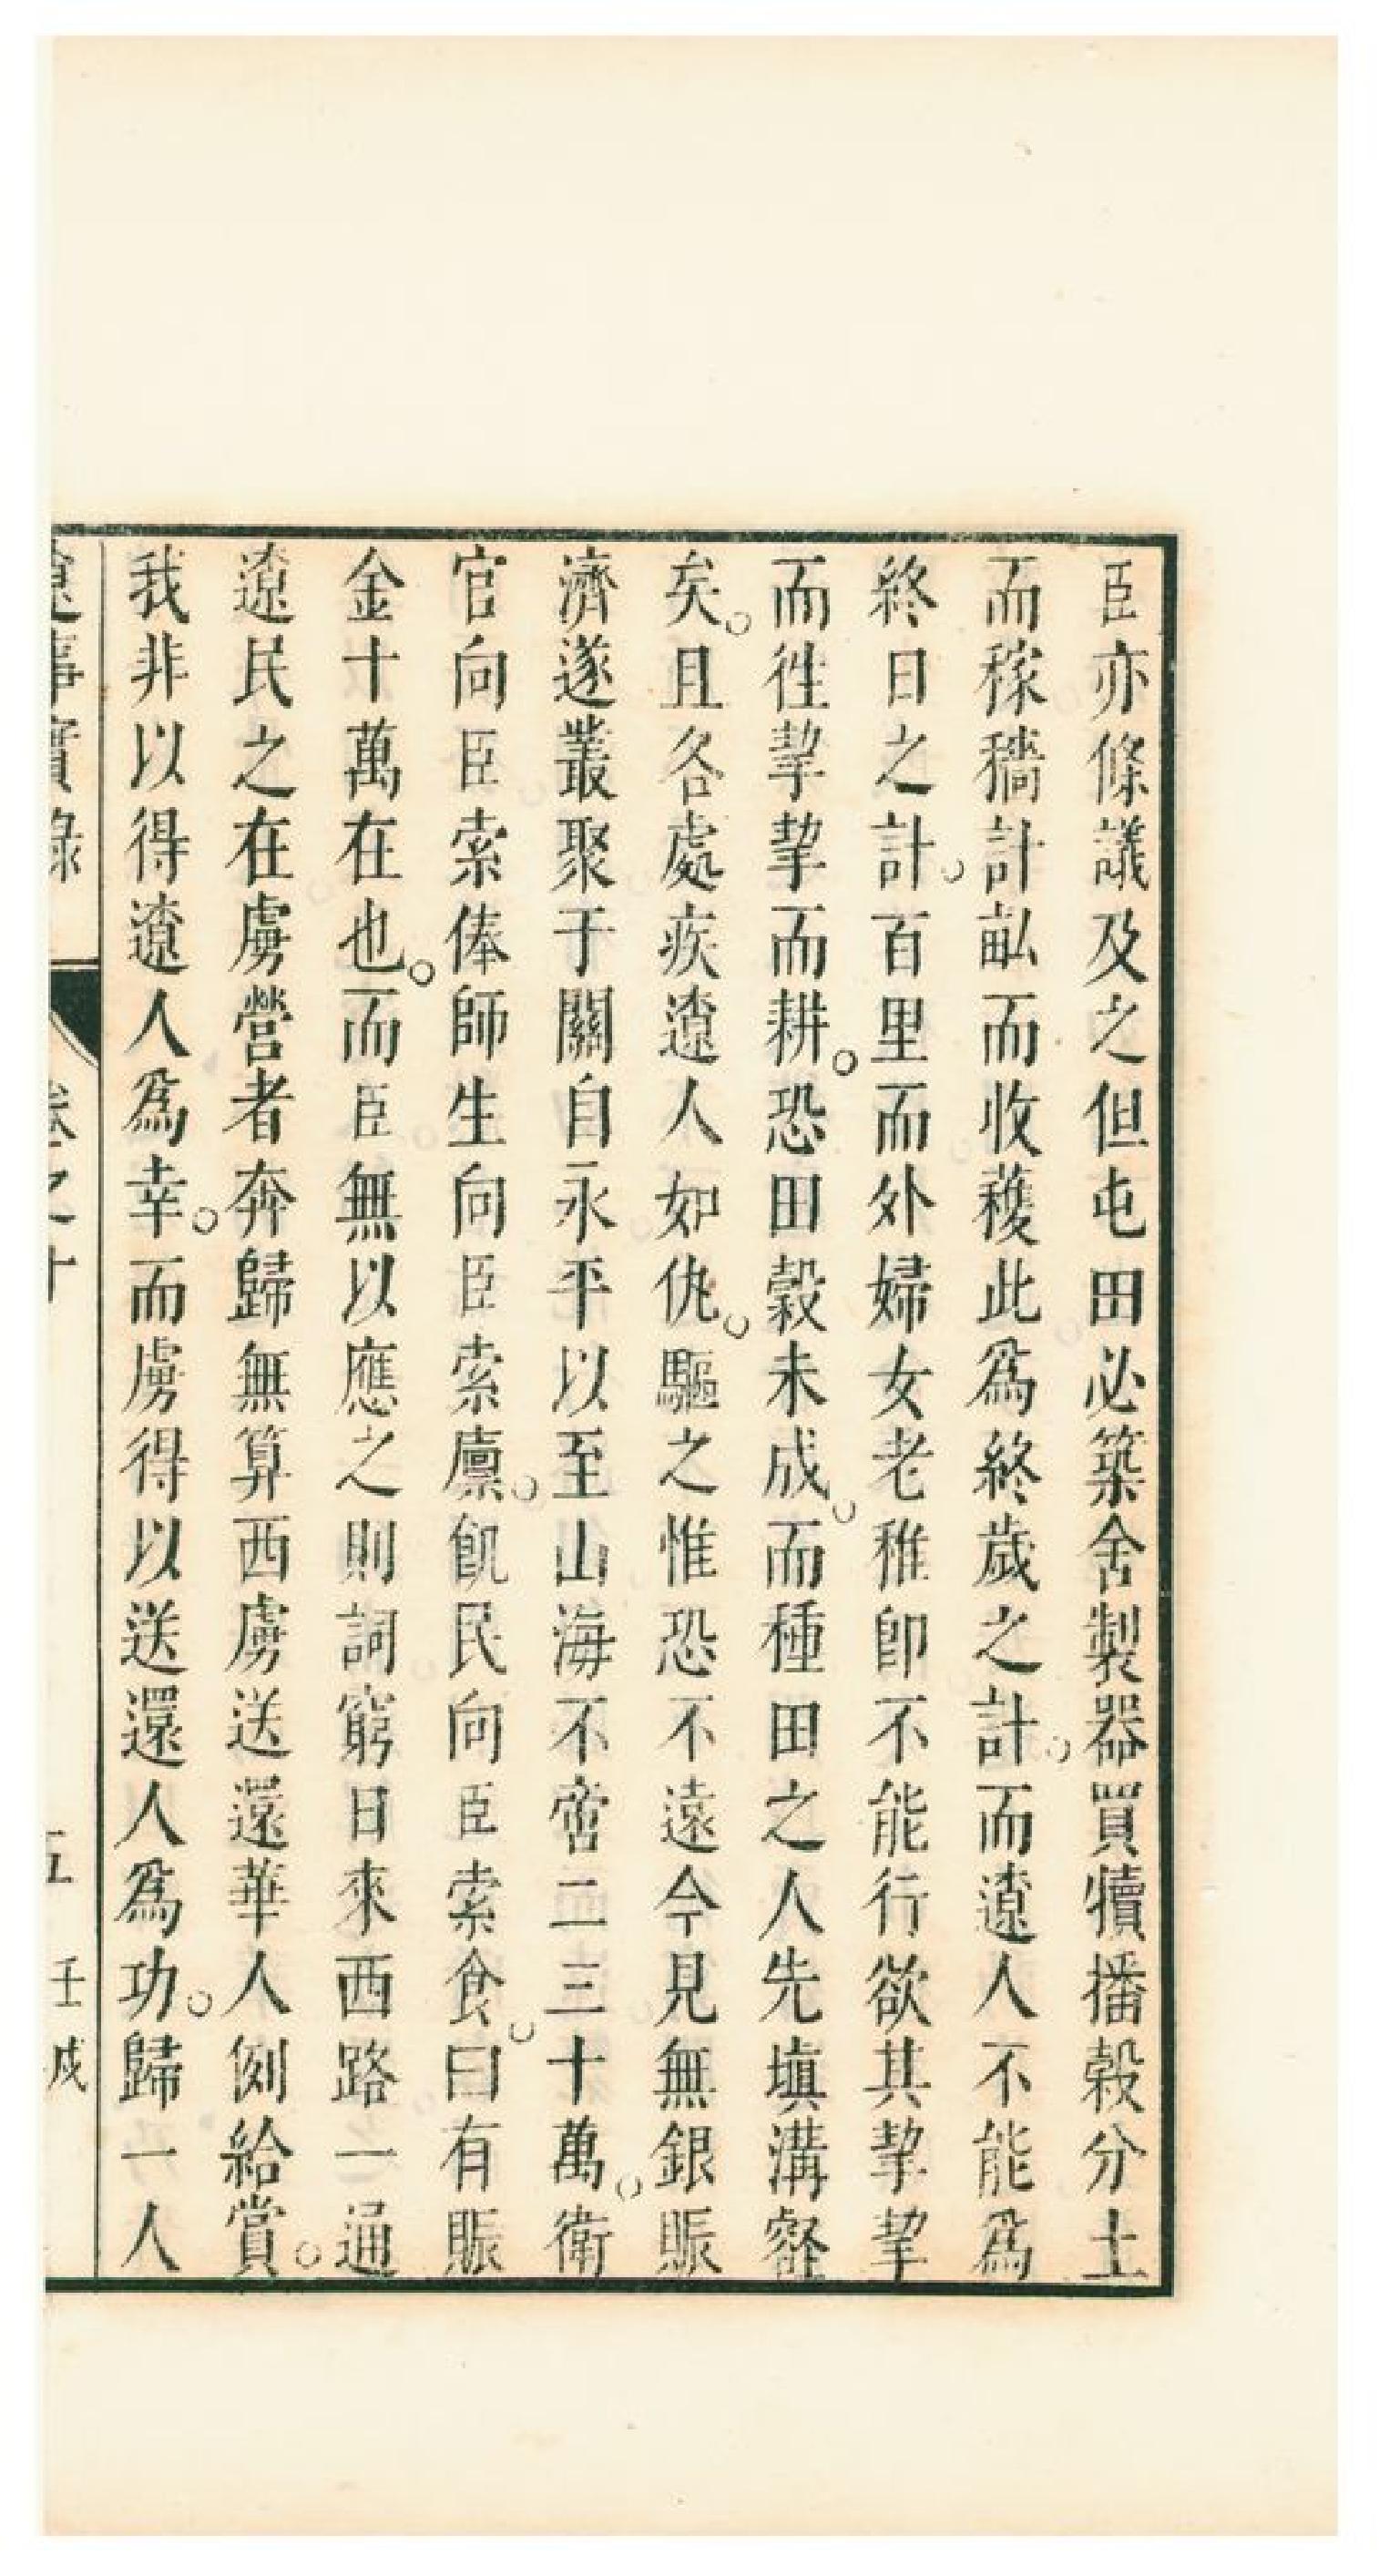 臣亦條議及之但屯田必築舍製器買犢播穀分土
而稼穡計畆而收穫此爲終歲之計。而遼人不能爲
終日之計。百里而外婦女老稚卽不能行欲其挈挈
而徃挈挈而耕。恐田穀未成。而種田之人先塡溝壑
矣。且各處疾遼人如仇。驅之惟恐不遠今見無銀賑
濟遂叢聚于關自永平以至山海不啻二三十萬。衛
官向臣索俸師生向臣索廪。飢民向臣索食。曰有賑
金十萬在也。而臣無以應之則詞窮日來西路一通
遼民之在虜營者奔歸無算西虜送還華人例給賞。
我非以得遼人爲幸。而虜得以送還人爲功。歸一人
遼事實錄 卷之十 五 壬戌